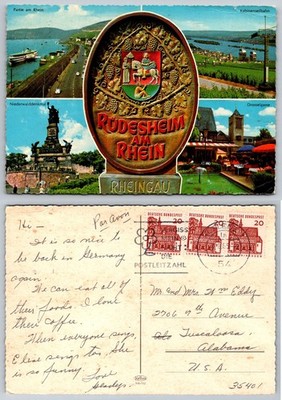 RÜDESHEIM
AM
RHEIN
RHEINGAU
Hi —
Par Avion
It is so nice to
be back in Germany
again.
We can eat all of
their foods & love
their coffee.
Then everyone sings.
Elese sings too. She
is so funny.
Love
Gladys.
DEUTSCHE BUNDESPOST
DEUTSCHE BUNDESPOST
DEUTSCHE BUNDESPOST
20
20
20
VERGISS
DIE
POSTLEITZAHL
54
Mr and Mrs Wm Eddy
2706 9th Avenue
Tuscaloosa
Alabama
U.S.A.
35401